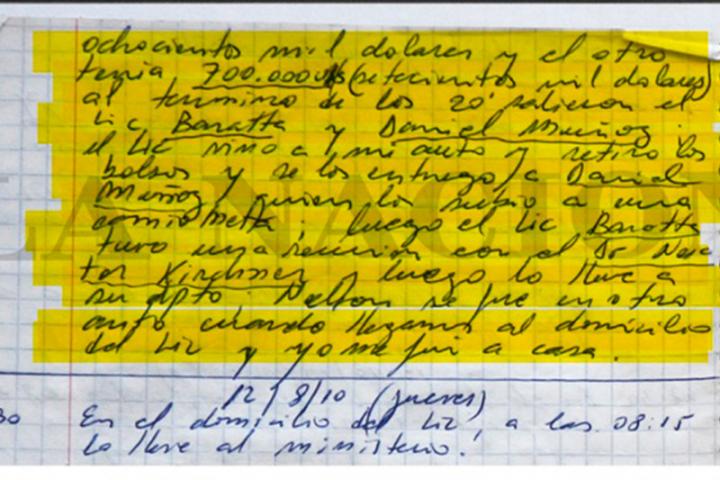 ochocientos mil dolares y el otro
tenia 700.000 u$s (setecientos mil dolares)
al termino de los 20' salieron el
Lic Baratta y Daniel Muñoz.
el Lic vino a mi auto y retiro los
bolsos y se los entrego a Daniel
Muñoz, quien los subio a una
camioneta; luego el Lic Baratta
tuvo una reunion con el Dr Nes
tor Kirchner y luego lo lleve a
su dpto, Nelson se fue en otro
auto cuando llegamos al domicilio
del Liz y yo me fui a casa.
12/8/10 (jueves)
30 En el domicilio del Liz, a las 08:15
lo lleve al ministerio.
LA NACION